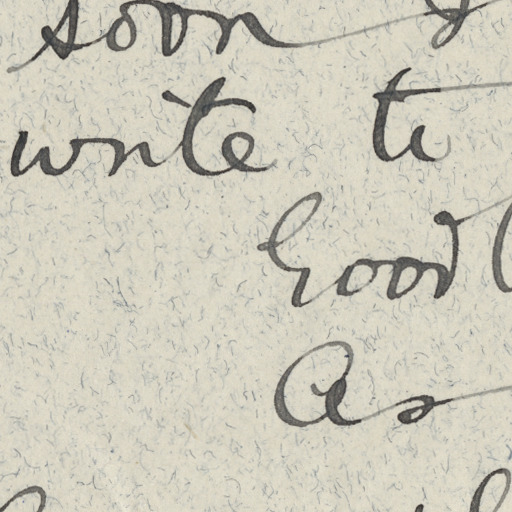 soon
write to
Good
As